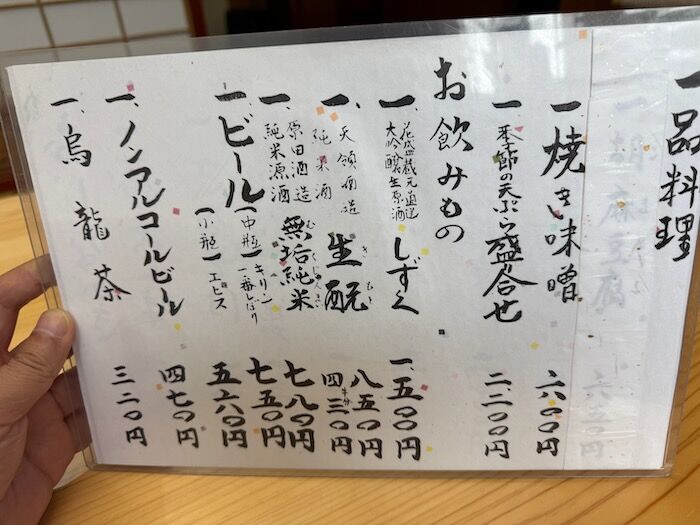 一品料理
一 焼き味噌 六〇〇円
一 季節の天ぷら盛合せ 二、二〇〇円
お飲みもの
一 花盛蔵元直送
大吟醸生原酒
しずく 一、五〇〇円
一、天領酒造
純米酒
生酛 八五〇円
きもと
半分 四三〇円
一 原田酒造
純米源酒
無垢純米 七八〇円
一 ビール
(中瓶) キリン
一番しぼり 七五〇円
(小瓶) エビス 五六〇円
一、ノンアルコールビール 四七〇円
一、烏龍茶 三二〇円